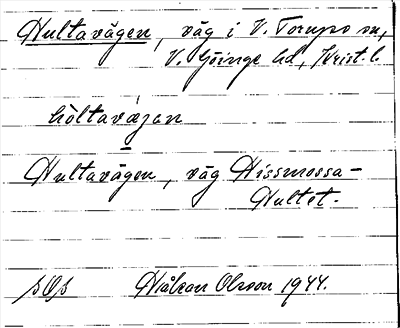 Hultavägen, väg i V. Torups sn,
V. Göinge hd, Krist. l.
hòltavæjan
Hultavägen, väg Hissmossa-
Hultet.
Håkan Olsson 1944.